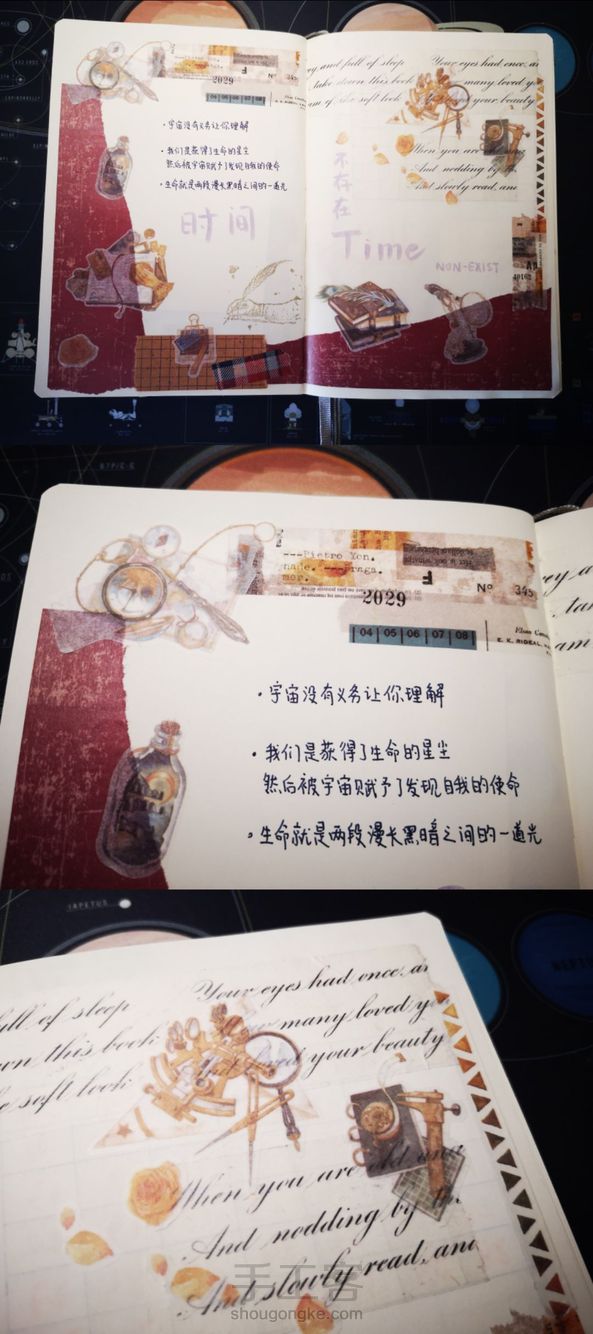 2029
F
345
04 05 06 07 08
·宇宙没有义务让你理解
·我们是获得了生命的星尘
然后被宇宙赋予了发现自我的使命
·生命就是两段漫长黑暗之间的一道光
时间
ey and full of sleep
take down this book
am of the soft look
Your eyes had once, an
many loved yo
your beauty
When you are old and
And nodding by
And slowly read, and
不存在
Time
NON-EXIST
---Pietro Yon.
---Praga.
F
Nº 345
2029
04 05 06 07 08
E. K. RIDEAL
ey a
tak
am
·宇宙没有义务让你理解
·我们是获得了生命的星尘
然后被宇宙赋予了发现自我的使命
·生命就是两段漫长黑暗之间的一道光
IAPETUS
NEPTU
full of sleep
wn this book
e soft look
Your eyes had once, an
many loved yo
And loved your beauty
When you are old and
And nodding by th
And slowly read, and
手工客
shougongke.com